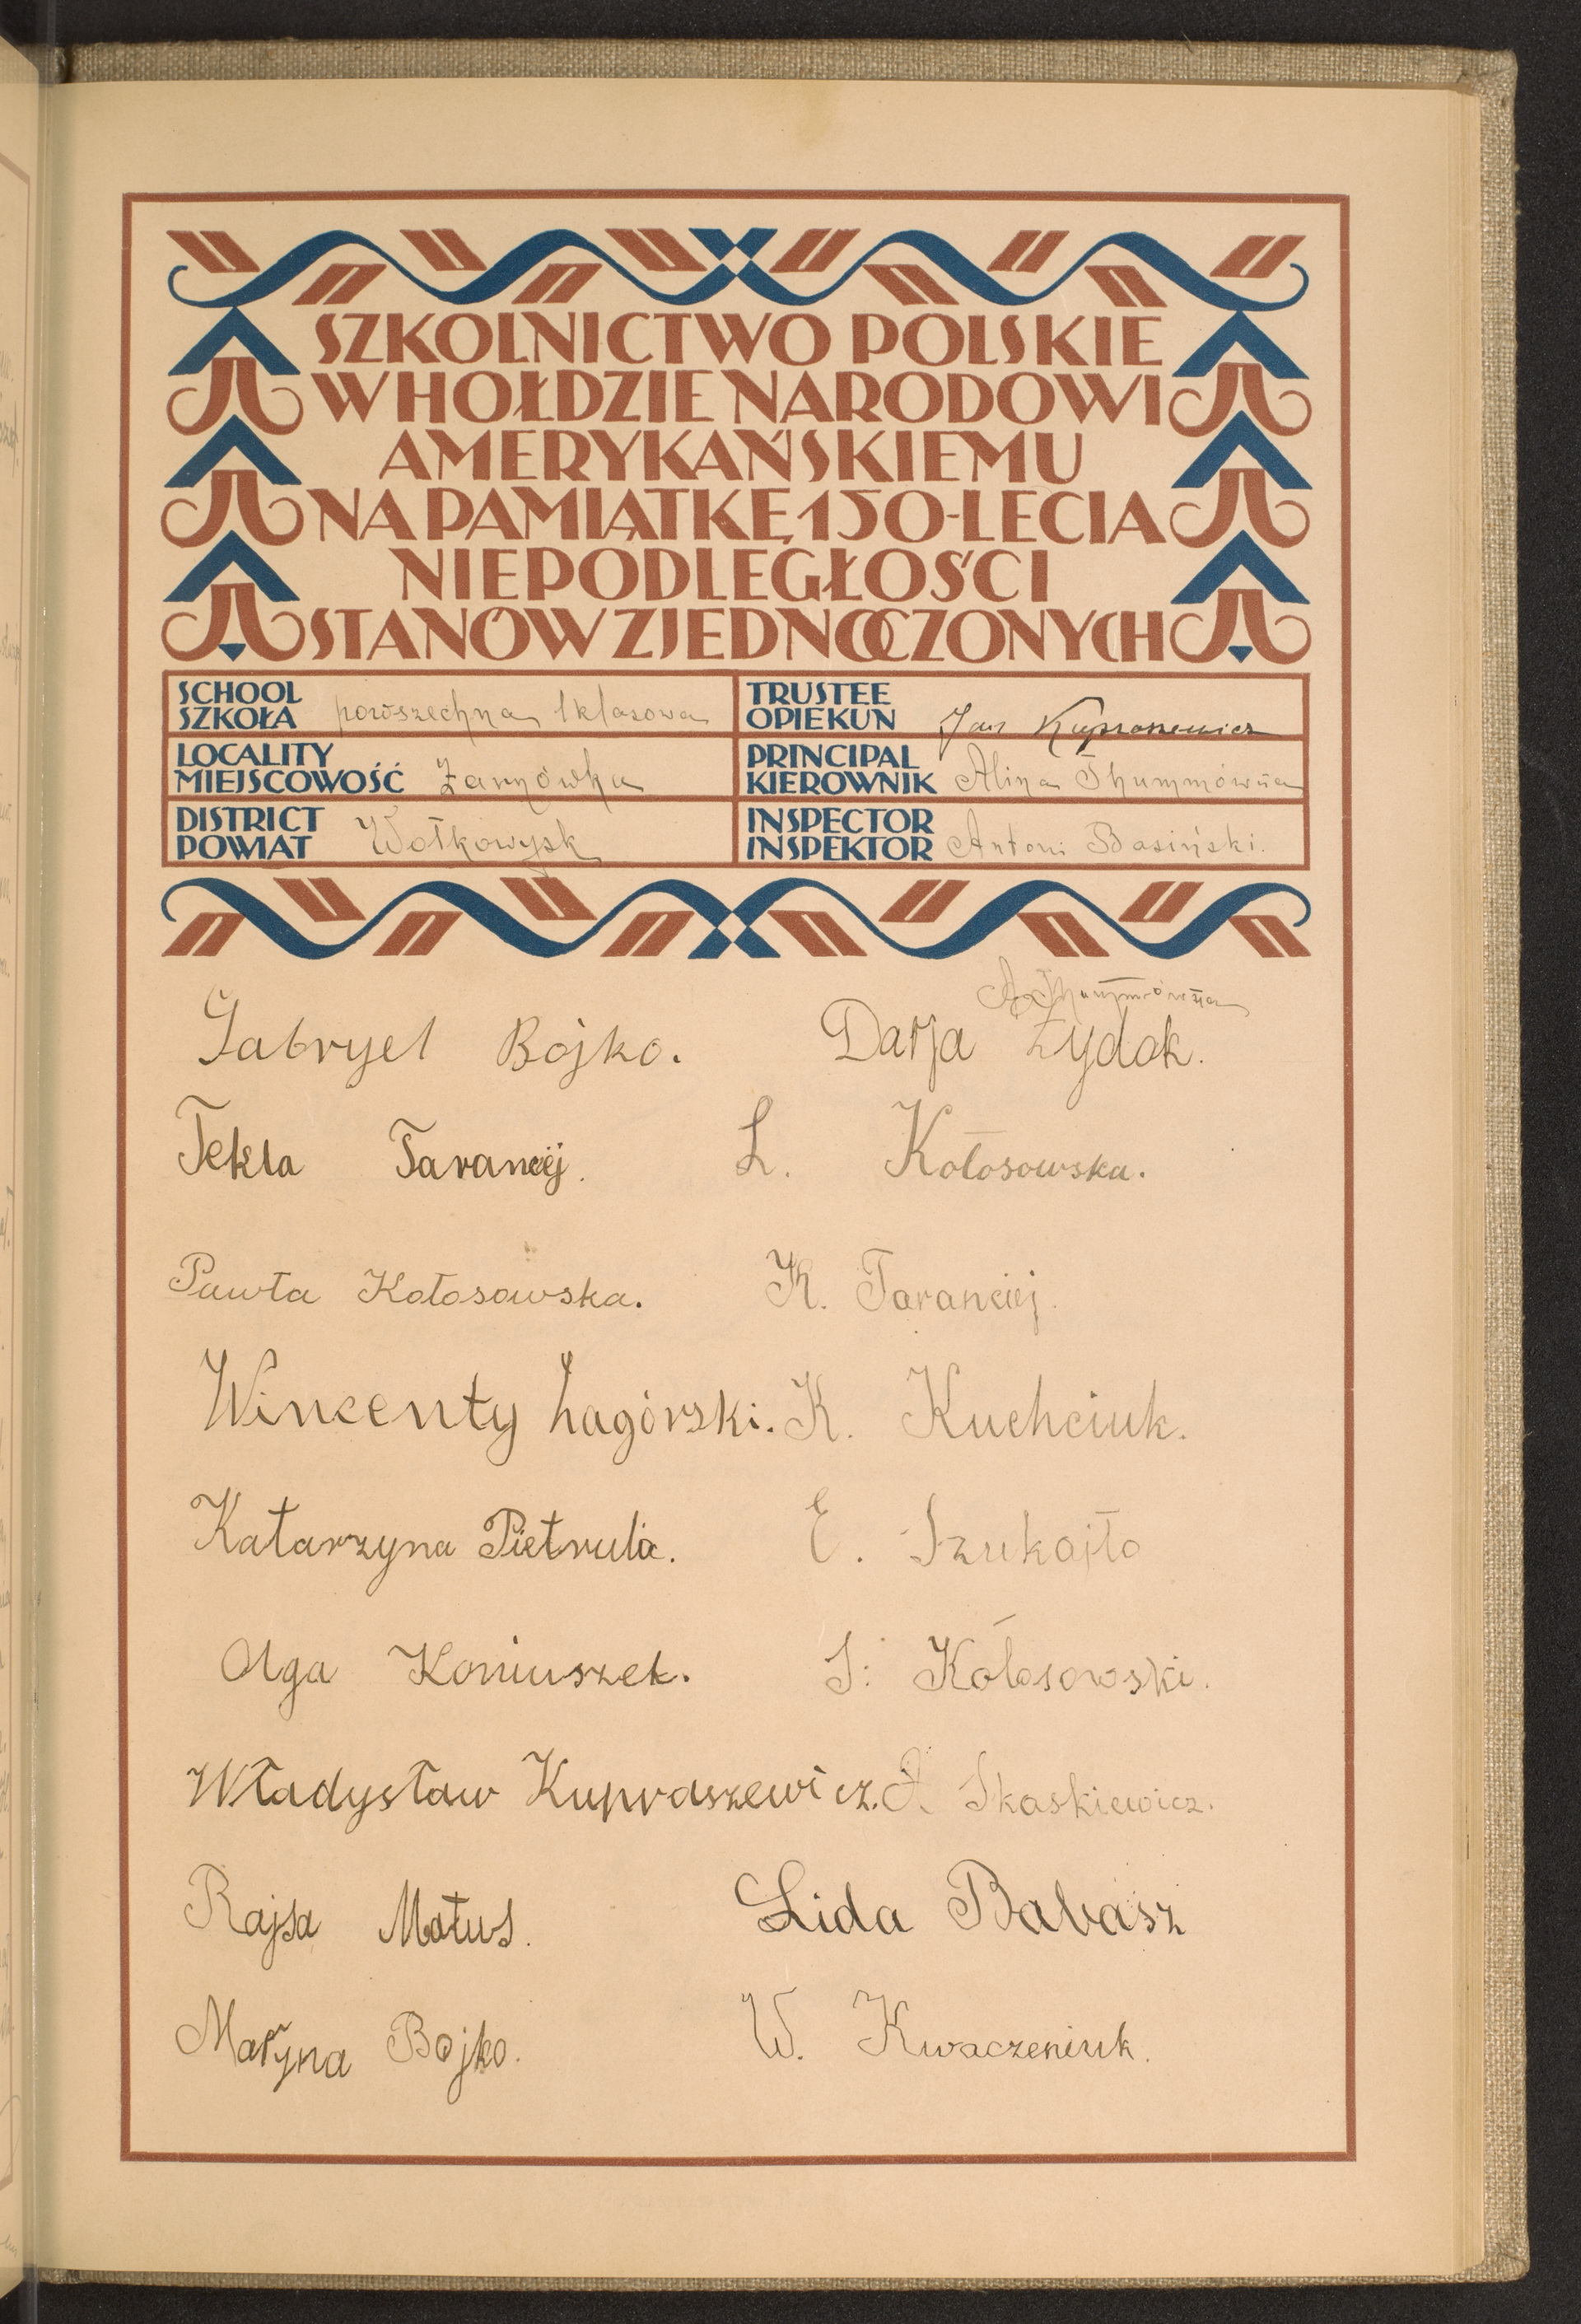 SZKOLNICTWO POLSKIE
W HOŁDZIE NARODOWI
AMERYKAŃSKIEMU
NA PAMIĄTKĘ 150-LECIA
NIEPODLEGŁOŚCI
STANÓW ZJEDNOCZONYCH
SCHOOL
SZKOŁA powszechna 1klasowa
TRUSTEE
OPIEKUN Jan Kuproszewicz
LOCALITY
MIEJSCOWOŚĆ Żarnówka
PRINCIPAL
KIEROWNIK Alina Thummówna
DISTRICT
POWIAT Wołkowysk
INSPECTOR
INSPEKTOR Antoni Basiński.
A. Thummówna
Gabryel Bojko. Darja Żydok.
Tekla Taranciej. L. Kołosowska.
Pawła Kołosowska. K. Taranciej.
Wincenty Łagórski. K. Kuchciuk.
Katarzyna Pietrula. E. Szukajło
Olga Koniuszek. S. Kołosowski.
Władysław Kupraszewicz. A. Skaskiewicz.
Rajsa Matus. Lida Babasz
Maryna Bojko. W. Kwaczeniuk.